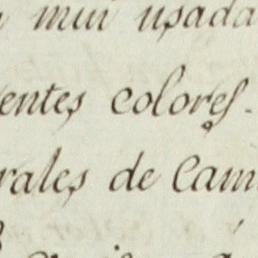 mui usada
entes colores.
rales de Cam